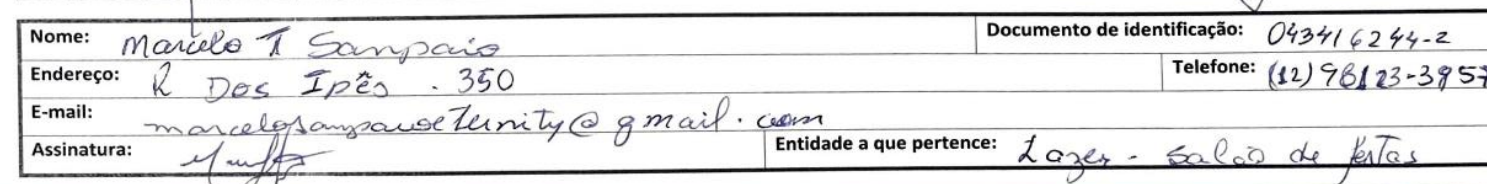 Nome: Marcelo T Sampaio Documento de identificação: 043416244-2
Endereço: R Dos Ipês . 350 Telefone: (12) 98123-3957
E-mail: marcelosampaioeternity@gmail.com
Assinatura: Entidade a que pertence: Lazer - Salão de festas